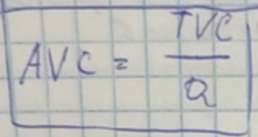 AVC = TVC / Q